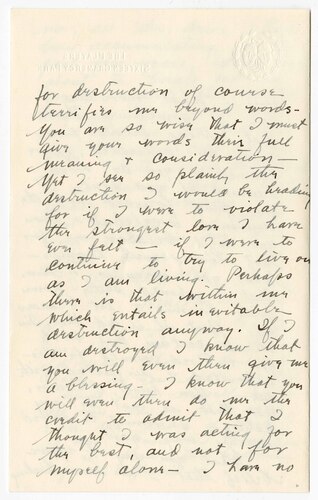 for destruction of course
terrifies me beyond words-
You are so wise that I must
give your words their full
meaning & consideration-
Yet I see so plainly the
destruction I would be heading
for if I were to violate
the strongest love I have
ever felt - if I were to
continue to try to live on
as I am living. Perhaps
there is that within me
which entails inevitable
destruction anyway. If I
am destroyed I know that
you will even then give me
a blessing - I know that you
will even then do me the
credit to admit that I
thought I was acting for
the best, and not for
myself alone - I have no